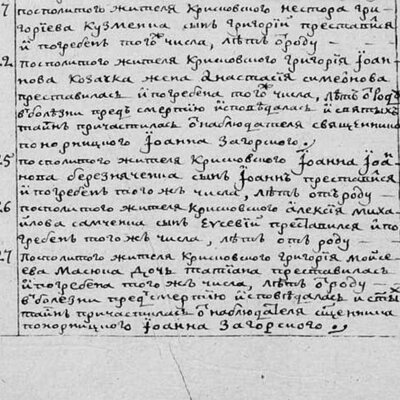 7 посполитого жителя Крисковского нестора гри-
горїева Кузменка сынъ григорїй преставися
и погребенъ того числа, лѣтъ ѿ роду
22 посполитого жителя Крисковского григорїя їоан-
нова Козачка жена анастасїя симеонова
преставилась и погребена того числа, лѣтъ ѿ роду
в болѣзни предъ смертїю исповѣдалась и святыхъ
таинъ причастилась ѿ наблюдателя священника
понорницкого їоанна Загорского.
25 посполитого жителя Крисковского їоанна їоан-
нова березненка сынъ їоаннъ преставися
и погребенъ того жъ числа, лѣтъ отъ роду
26 посполитого жителя Крисковского алексїя миха-
йлова самченка сынъ евсевїй преставился и по-
гребенъ того жъ числа, лѣтъ отъ роду
27 посполитого жителя Крисковского григорїя мойсе-
ева Масюка дочь татїана преставилась
и погребена того жъ числа, лѣтъ ѿ роду
в болезни предъ смертїю исповѣдалась и стыхъ
таинъ причастилась ѿ наблюдателя сщенника
понорницкого їоанна Загорского